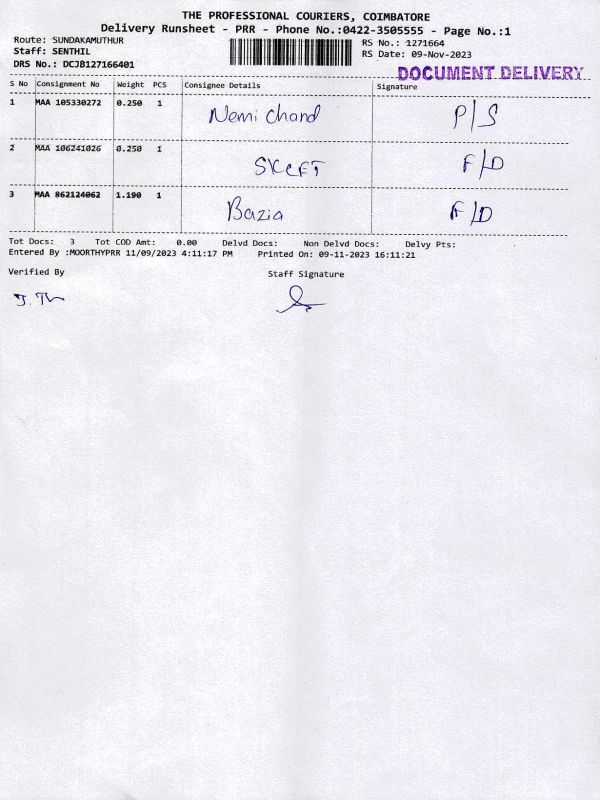 THE PROFESSIONAL COURIERS, COIMBATORE
Delivery Runsheet - PRR - Phone No.:0422-3505555 - Page No.:1
Route: SUNDAKAMUTHUR
RS No.: 1271664
Staff: SENTHIL
RS Date: 09-Nov-2023
DRS No.: DCJB127166401
DOCUMENT DELIVERY
S No Consignment No Weight PCS Consignee Details Signature
1 MAA 105330272 0.250 1 Nemi Chand P/S
2 MAA 106241026 0.250 1 F/D
3 MAA 862124062 1.190 1 Bazia F/D
Tot Docs: 3 Tot COD Amt: 0.00 Delvd Docs: Non Delvd Docs: Delvy Pts:
Entered By :MOORTHYPRR 11/09/2023 4:11:17 PM Printed On: 09-11-2023 16:11:21
Verified By Staff Signature